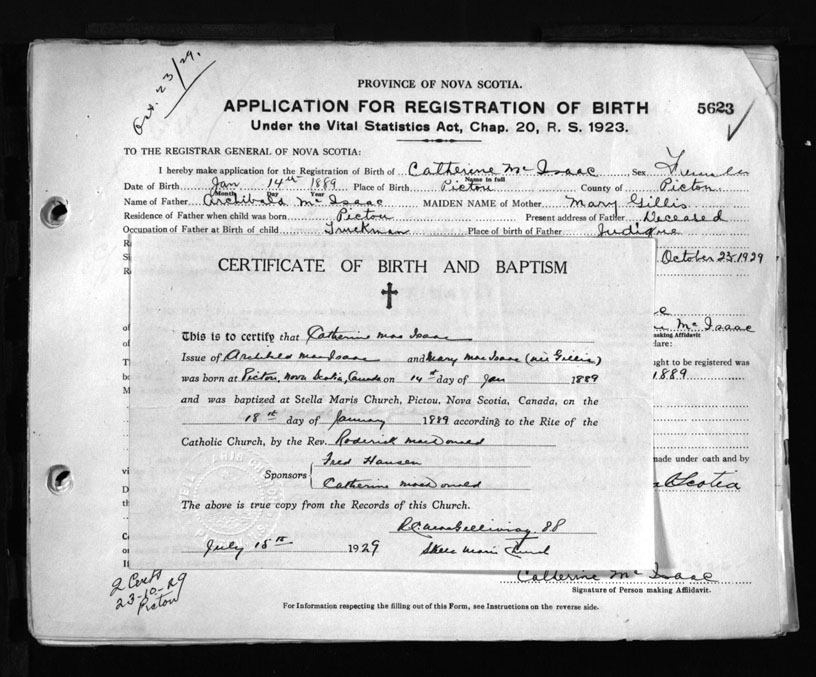 Oct. 23/29.
PROVINCE OF NOVA SCOTIA.
APPLICATION FOR REGISTRATION OF BIRTH
5623
Under the Vital Statistics Act, Chap. 20, R. S. 1923.
TO THE REGISTRAR GENERAL OF NOVA SCOTIA:
I hereby make application for the Registration of Birth of Catherine Mc Isaac Sex Female
Name in full
Date of Birth Jan 14th 1889 Place of Birth Pictou County of Pictou
Month Day Year
Name of Father Archibald Mc Isaac MAIDEN NAME of Mother Mary Gillis
Residence of Father when child was born Pictou Present address of Father Deceased
Occupation of Father at Birth of child Truckman Place of birth of Father Judique
October 23 1929
CERTIFICATE OF BIRTH AND BAPTISM
This is to certify that Catherine Mac Isaac
Mc Isaac
making Affidavit
lare:
Issue of Archibald Mac Isaac and Mary Mac Isaac (nee Gillis)
ught to be registered was
was born at Pictou, Nova Scotia, Canada on 14th day of Jan 1889
1889
and was baptized at Stella Maris Church, Pictou, Nova Scotia, Canada, on the
18th day of January 1889 according to the Rite of the
Catholic Church, by the Rev. Roderick MacDonald
made under oath and by
Fred Hansen
Sponsors
Catherine MacDonald
Scotia
The above is true copy from the Records of this Church.
R. C. MacGillivray P.P.
July 15th 1929 Stella Maris Church
2 Certs
23-10-29
Pictou
Catherine Mc Isaac
Signature of Person making Affidavit.
For Information respecting the filling out of this Form, see Instructions on the reverse side.